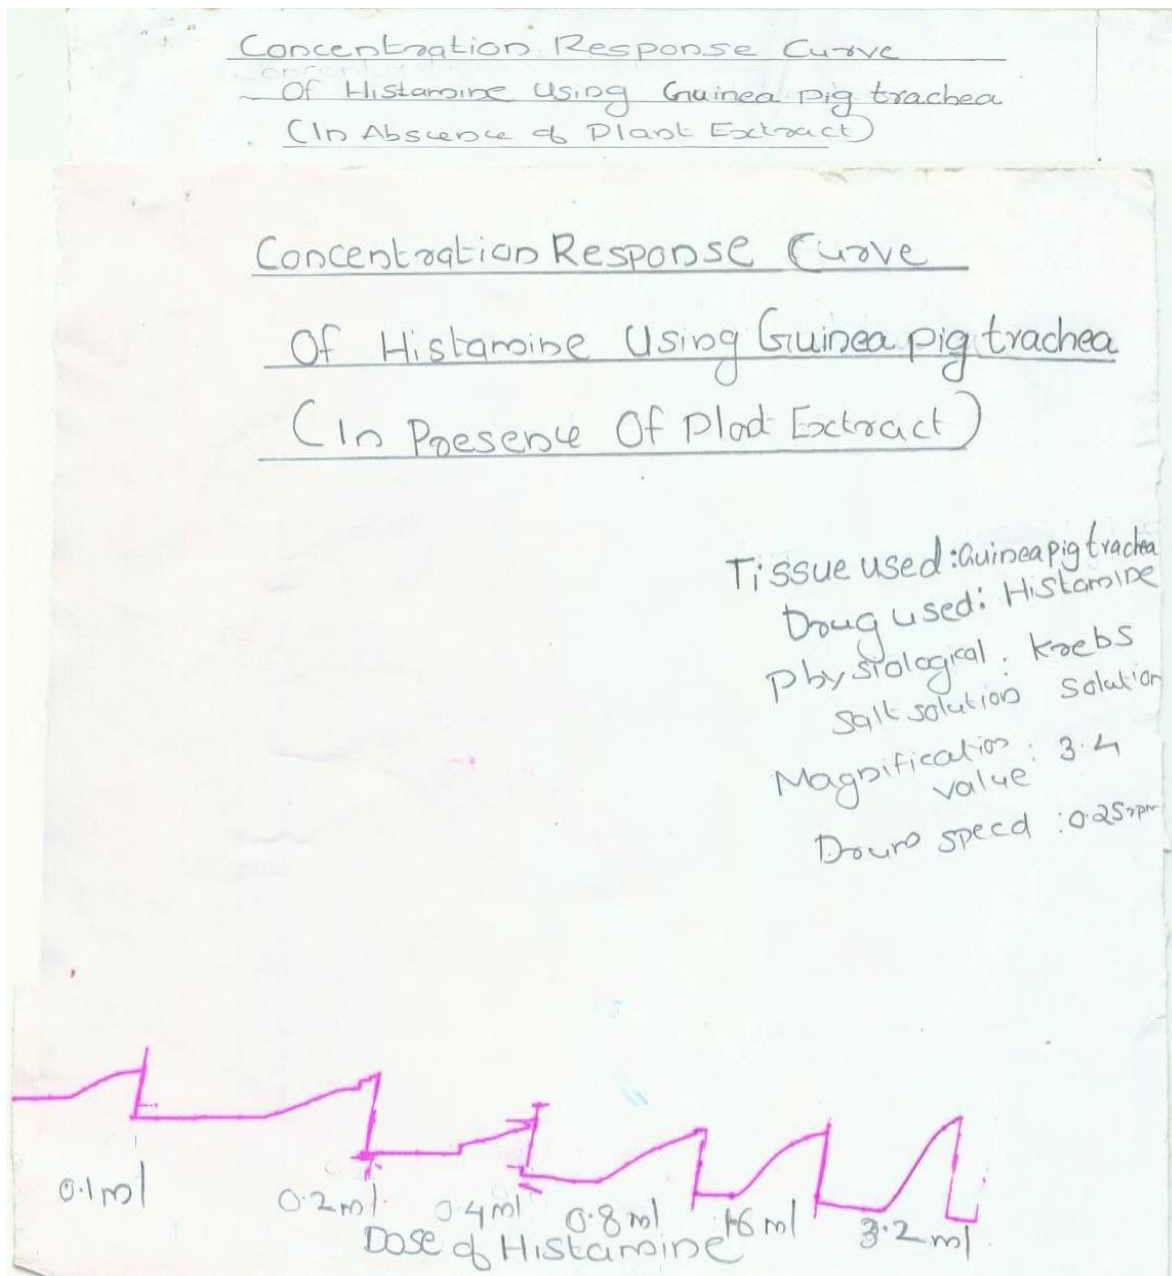 Concentration Response Curve
Of Histamine Using Guinea pig trachea
(In Abscence of Plant Extract)
Concentration Response Curve
Of Histamine Using Guinea pig trachea
(In Presence Of Plant Extract)
Tissue used: Guinea pig trachea
Drug used: Histamine
Physiological : Krebs
salt solution solution
Magnification : 3.4
value
Drum speed : 0.25 rpm
0.1 ml 0.2 ml 0.4 ml 0.8 ml 1.6 ml 3.2 ml
Dose of Histamine